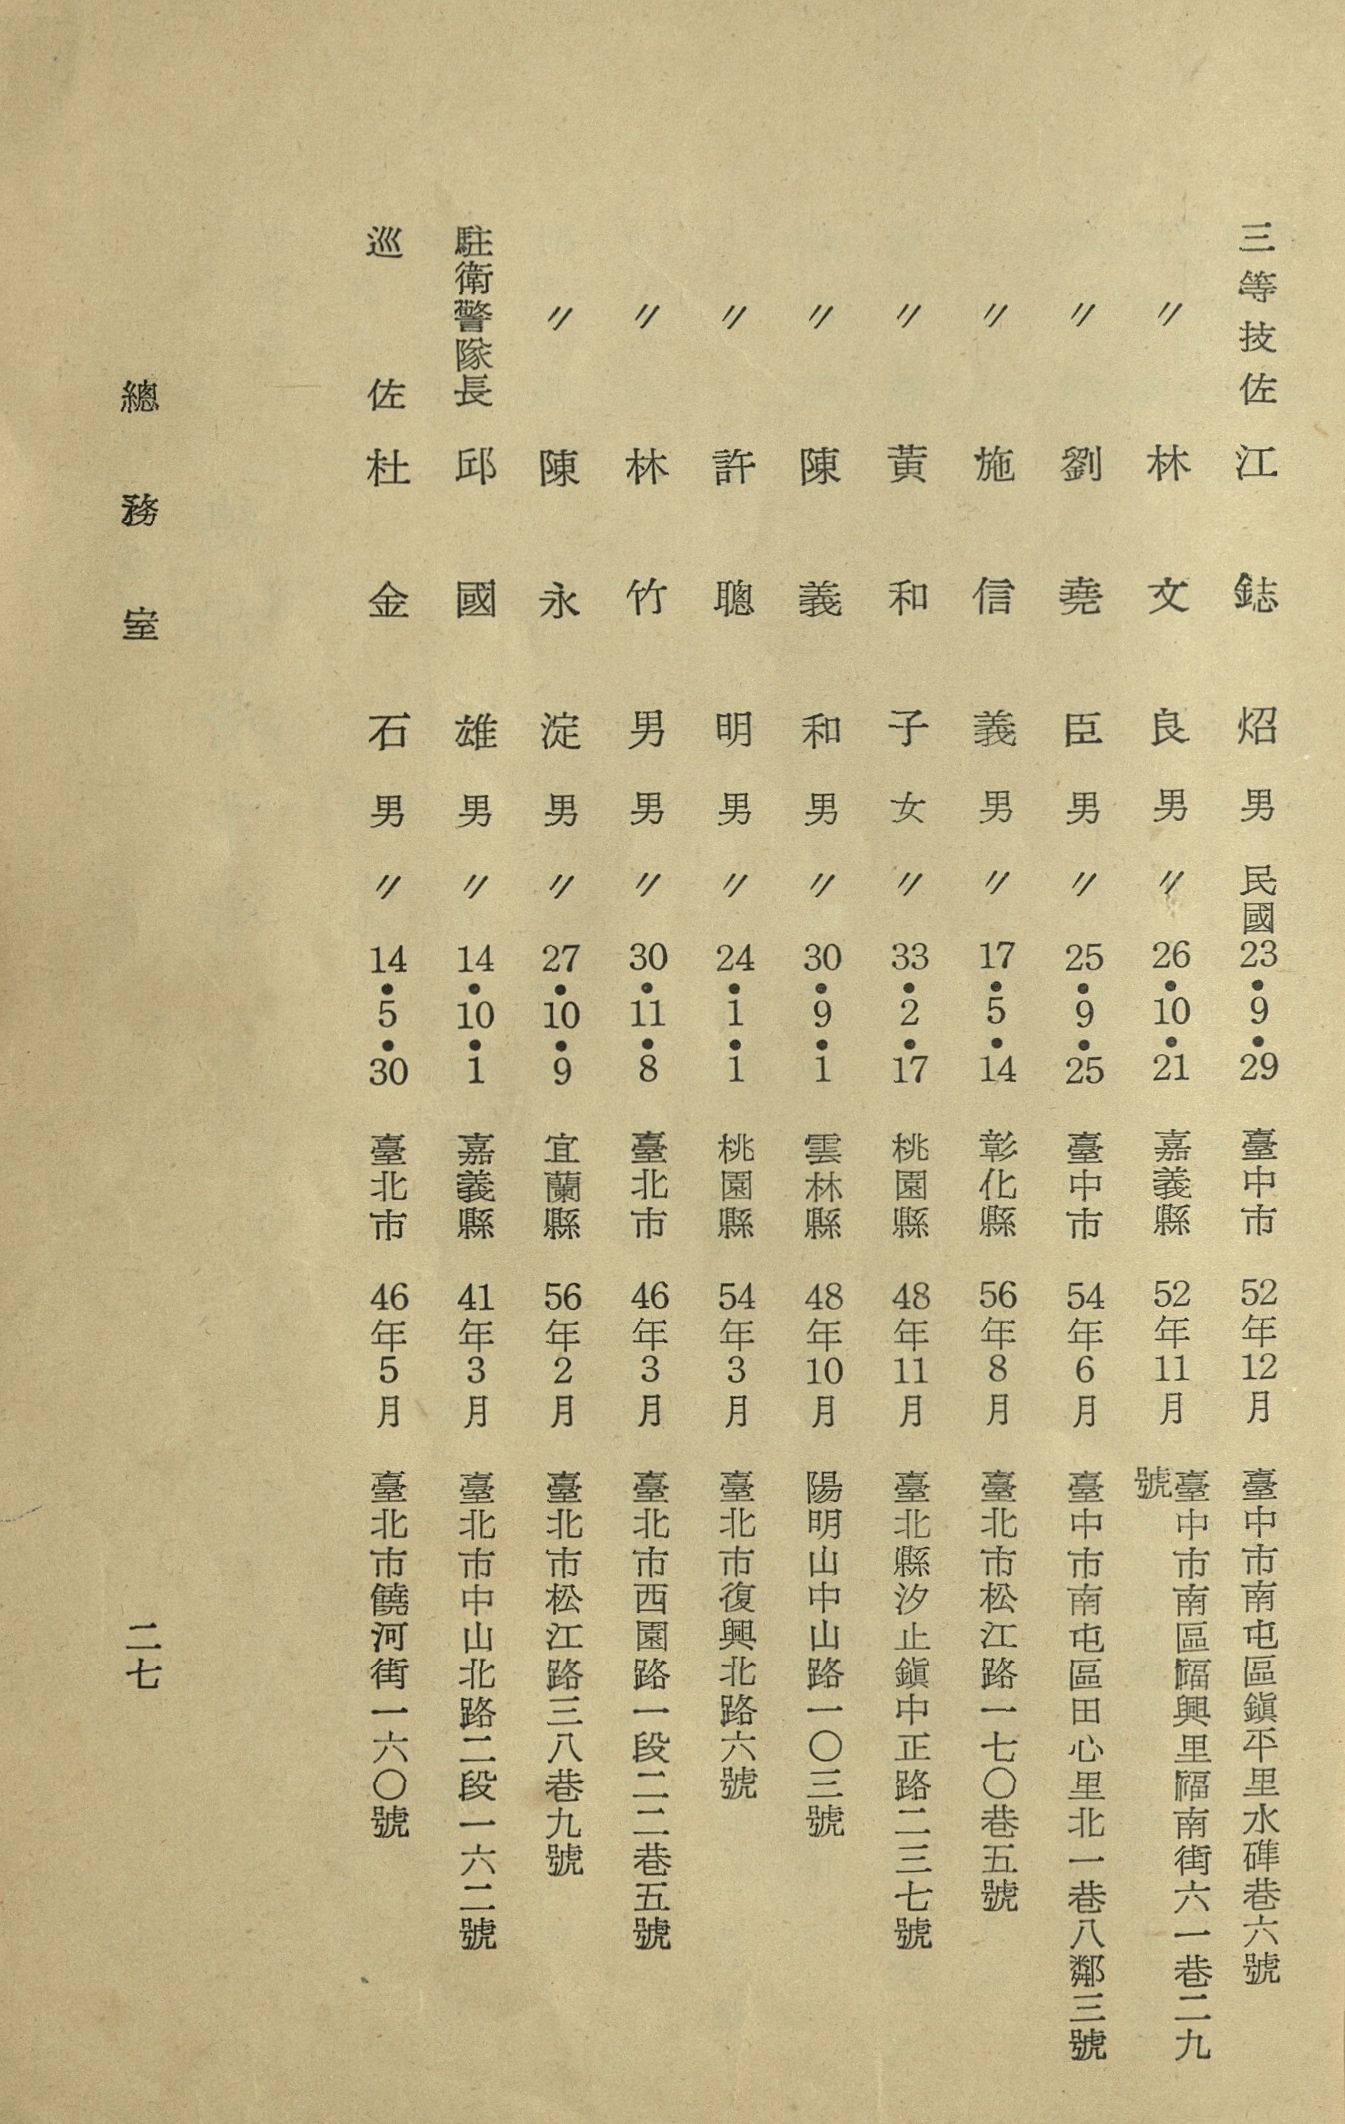 三等技佐 江鋕炤 男 民國23•9•29 臺中市 52年12月 臺中市南屯區鎮平里水碓巷六號
〃 林文良 男 〃26•10•21 嘉義縣 52年11月 臺中市南區福興里福南街六一巷二九
號
〃 劉堯臣 男 〃25•9•25 臺中市 54年6月 臺中市南屯區田心里北一巷八鄰三號
〃 施信義 男 〃17•5•14 彰化縣 56年8月 臺北市松江路一七〇巷五號
〃 黃和子 女 〃33•2•17 桃園縣 48年11月 臺北縣汐止鎮中正路二三七號
〃 陳義和 男 〃30•9•1 雲林縣 48年10月 陽明山中山路一〇三號
〃 許聰明 男 〃24•1•1 桃園縣 54年3月 臺北市復興北路六號
〃 林竹男 男 〃30•11•8 臺北市 46年3月 臺北市西園路一段二二巷五號
〃 陳永淀 男 〃27•10•9 宜蘭縣 56年2月 臺北市松江路三八巷九號
駐衛警隊長 邱國雄 男 〃14•10•1 嘉義縣 41年3月 臺北市中山北路二段一六二號
巡佐 杜金石 男 〃14•5•30 臺北市 46年5月 臺北市饒河街一六〇號
總務室 二七